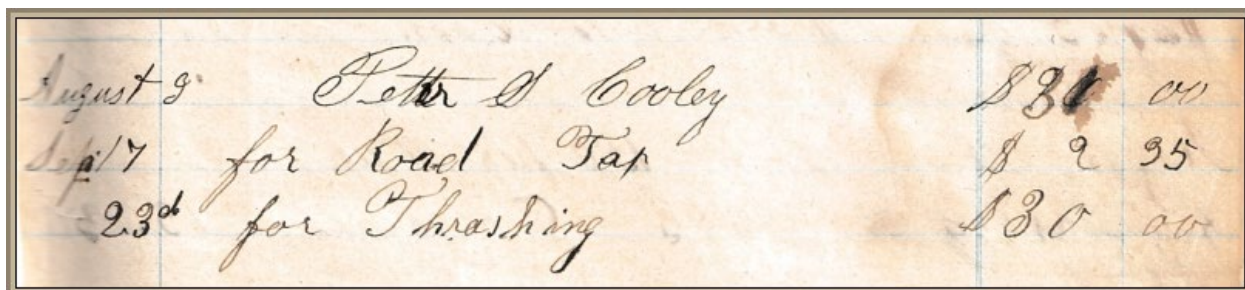 August 9 Peter S Cooley $30 00
Sep 17 for Road Tax $ 2 35
23d for Thrashing $30 00